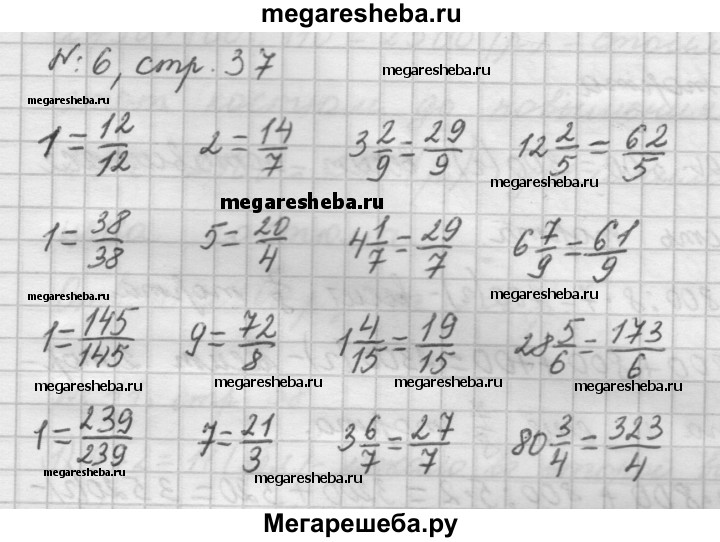 megaresheba.ru
№ 6, стр. 37
megaresheba.ru
megaresheba.ru
1 = 12/12 2 = 14/7 3 2/9 = 29/9 12 2/5 = 62/5
megaresheba.ru
megaresheba.ru
1 = 38/38 5 = 20/4 4 1/7 = 29/7 6 7/9 = 61/9
megaresheba.ru
megaresheba.ru
1 = 145/145 9 = 72/8 1 4/15 = 19/15 28 5/6 = 173/6
megaresheba.ru megaresheba.ru megaresheba.ru megaresheba.ru
1 = 239/239 7 = 21/3 3 6/7 = 27/7 80 3/4 = 323/4
megaresheba.ru
megaresheba.ru
Мегарешеба.ру